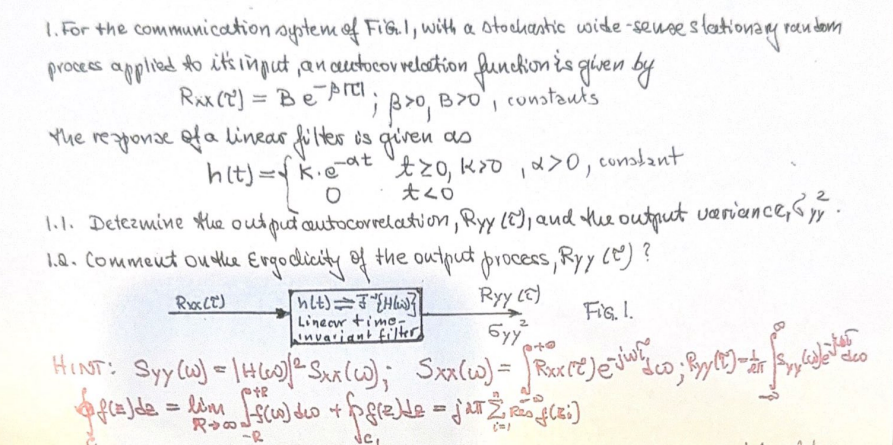 1. For the communication system of FIG.1, with a stochastic wide-sense stationary random
process applied to it's input, an autocorrelation function is given by
Rxx(τ) = B e^-β|τ| ; β>0, B>0, constants
the response of a linear filter is given as
h(t) = { K·e^-αt t≥0, K>0, α>0, constant
0 t<0
1.1. Determine the output autocorrelation, Ryy(τ), and the output variance, σyy².
1.2. Comment on the Ergodicity of the output process, Ryy(τ)?
Rxx(τ) h(t) ⇌ F⁻¹{H(ω)} Ryy(τ) FIG. 1.
Linear time-
invariant filter σyy²
HINT: Syy(ω) = |H(ω)|² Sxx(ω); Sxx(ω) = ∫_-∞^+∞ Rxx(τ) e^-jωτ dω; Ryy(τ) = 1/2π ∫_-∞^∞ Syy(ω) e^jωτ dω
∮ f(z)dz = lim R→∞ ∫_-R^+R f(ω)dω + ∫_C₁ f(z)dz = j2π Σ_i=1^n Res f(zi)